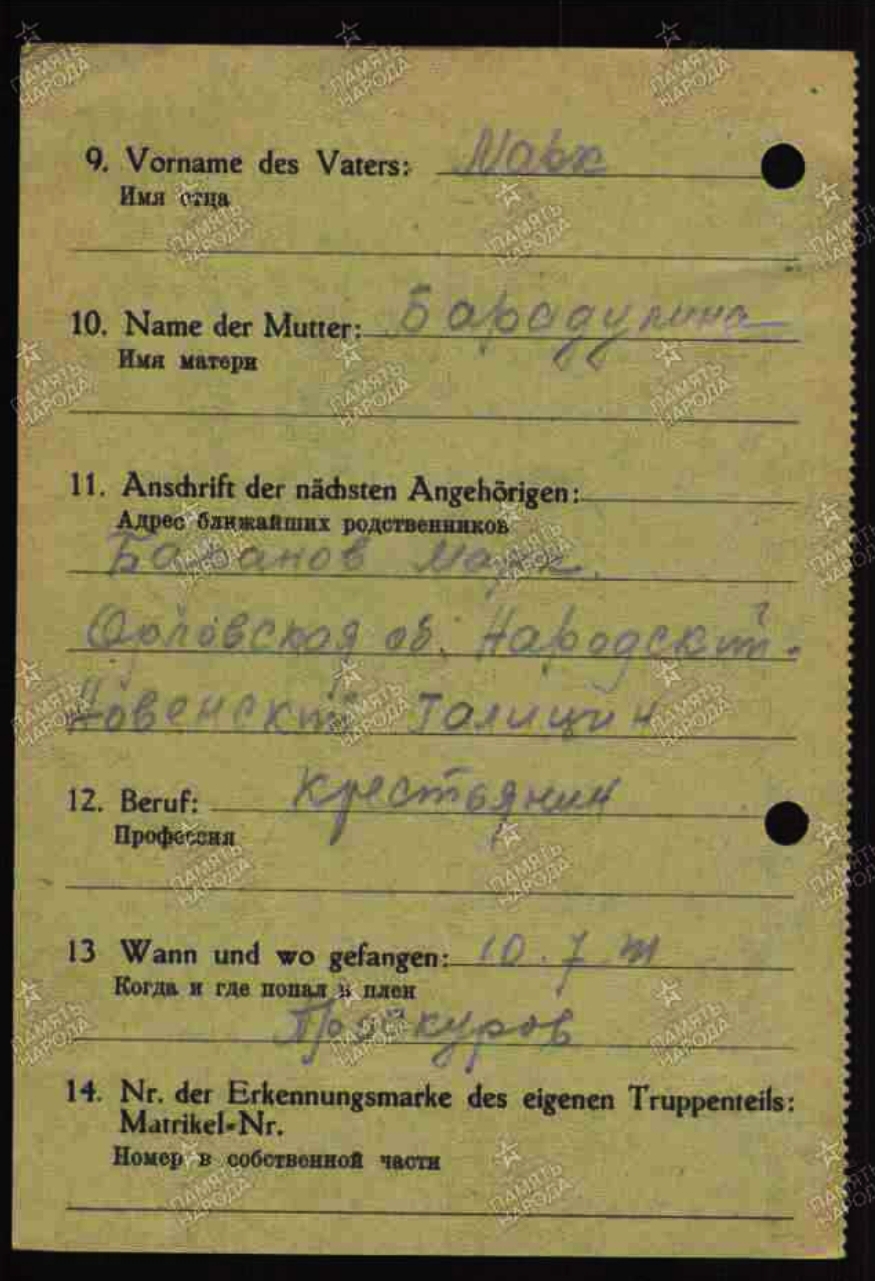 9. Vorname des Vaters: Марк
Имя отца
10. Name der Mutter: Барадулина
Имя матери
11. Anschrift der nächsten Angehörigen:
Адрес ближайших родственников
Баранов Марк.
Орловская об.
Галицин
12. Beruf: Крестьянин
Профессия
13 Wann und wo gefangen: 10.7
Когда и где попал в плен
Проскуров
14. Nr. der Erkennungsmarke des eigenen Truppenteils:
Matrikel-Nr.
Номер в собственной части
ПАМЯТЬ НАРОДА